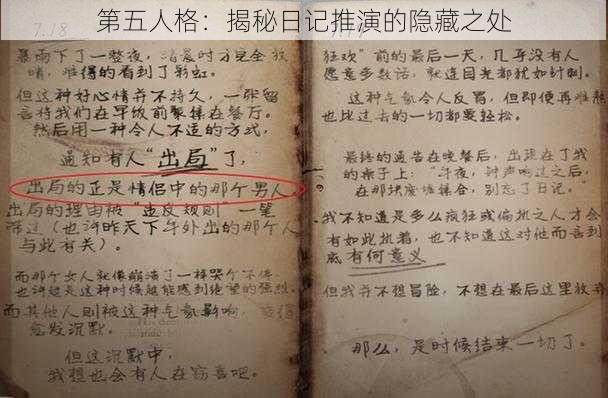 第五人格：揭秘日记推演的隐藏之处
7.18
暴雨下了一整夜，清晨时才完全放
晴，难得的看到了彩虹。
但这种好心情并不持久，一张留
言将我们在早饭前聚集在餐厅。
然后用一种令人不适的方式，
通知有人“出局”了，
出局的正是情侣中的那个男人
出局的理由被“违反规则”一笔
带过（也许昨天下午外出的那个人
与此有关）。
而那个女人就像崩溃了一样哭个不停
也许越是这种时候越能感到绝望的强烈
而其他人则被这种气氛影响，变得
愈发沉默。
但这沉默中，
我想也会有人在窃喜吧。
狂欢”前的最后一天，几乎没有人
愿意多数话，就连目光都犹如针刺。
这种气氛令人反胃，但即便再难熬
也比过去的一切都要轻松。
最终的通告在晚餐后，出现在了我
的桌子上：“午夜，钟声响过之后，
在那块废墟集合，别忘了日记。”
我不知道是多么疯狂或偏执之人才会
有如此执着，也不知道这对他而言到
底有何意义
但我并不想冒险，不想在最后这里放弃
那么，是时候结束一切了。